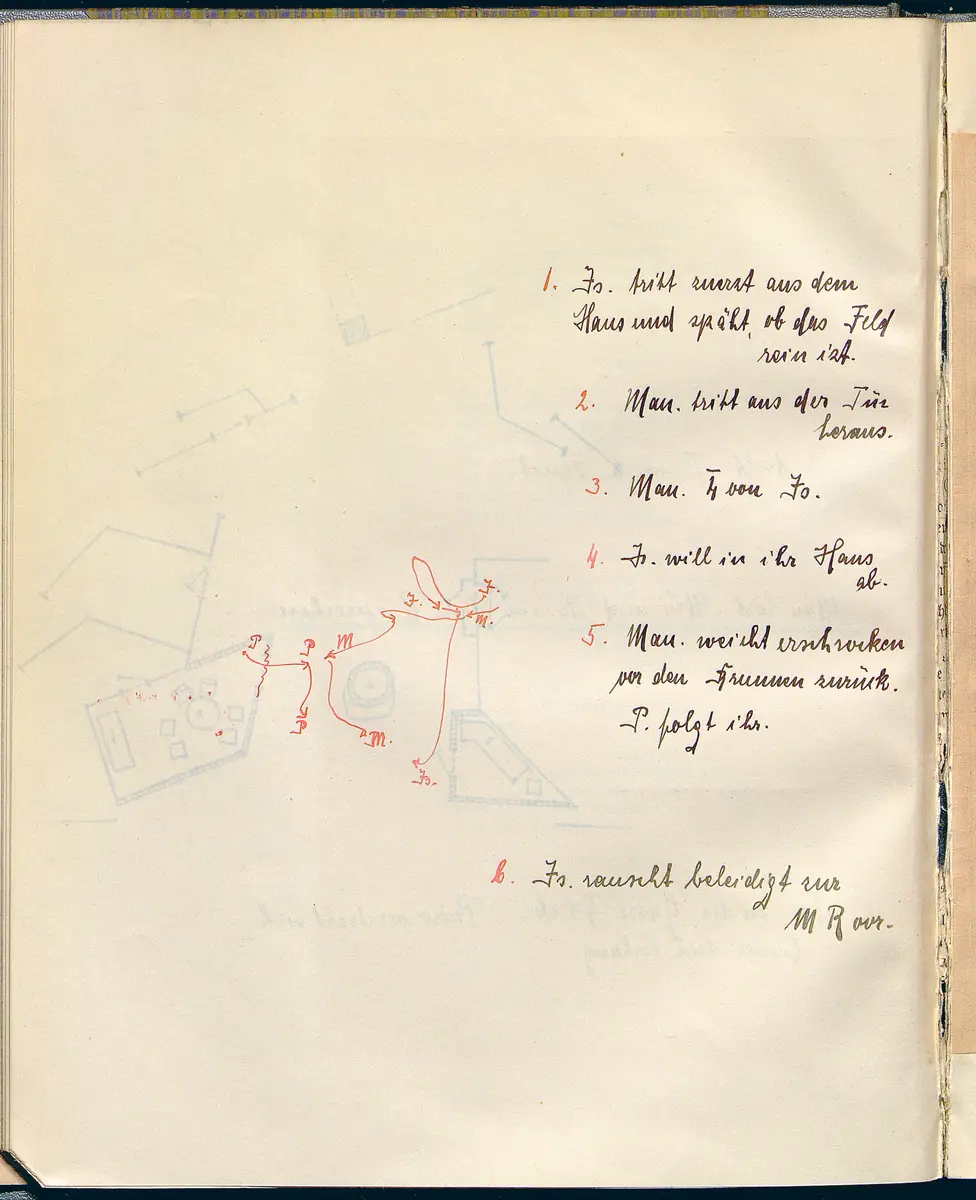 1. Is. tritt zuerst aus dem
Haus und späht, ob das Feld
rein ist.
2. Man. tritt aus der Tür
heraus.
3. Man. von Is.
4. Is. will in ihr Haus
ab.
5. Man. weicht erschrocken
vor den Brunnen zurück.
P. folgt ihr.
6. Is. rauscht beleidigt zur
M R vor.
P
P
P
M
M.
J.
J.
M.
Is.